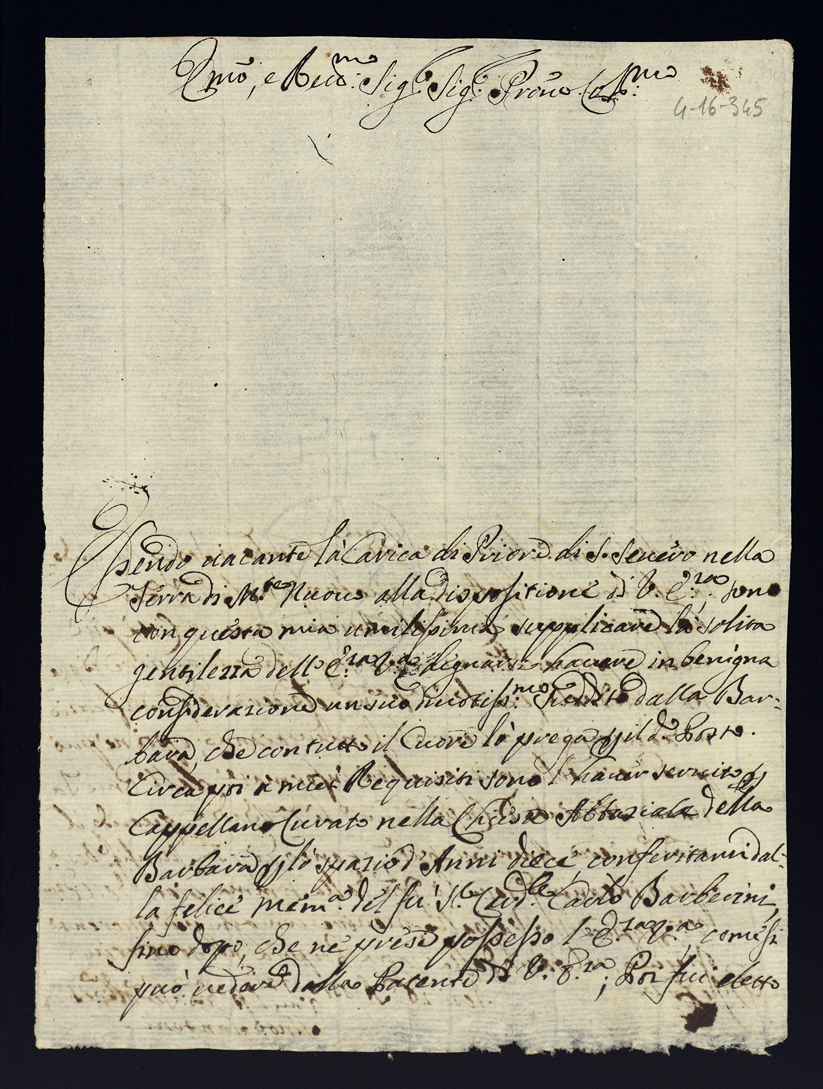 Emo, e Reu:mo Sig:r Sig:r Prone Col:mo
4-16-345
Essendo uacante la Carica di Priore di S. Seuero nella
Terra di M:te Nuouo alla dispositione di V. E:za sono
con questa mia umilissima, a supplicare la solita
gentilezza dell' E:za V:a degnarsi hauere in benigna
considerazione un suo diuotiss:mo Suddito dalla Bar-
bara che con tutto il Cuore lo prega p il d:o Posto.
Circa poi a miei Requisiti sono l' hauer seruito p
Cappellano Curato nella Chiesa Abbaziale della
Barbara p lo spazio d' Anni diece conferitami dal-
la felice mem:a del fu S:r Card:le Carlo Barberini,
fino dopo, che ne prese possesso l' E:za V:a, come si
può uedere dalla Patente di V: E:za; Poi fui eletto